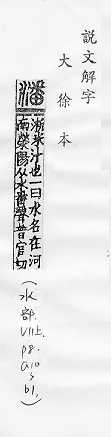 說文解字
大徐本
潘 淅米汁也一曰水名在河
南滎陽从水番聲普官切
(水部. VII上. p8. a10 > b1.)